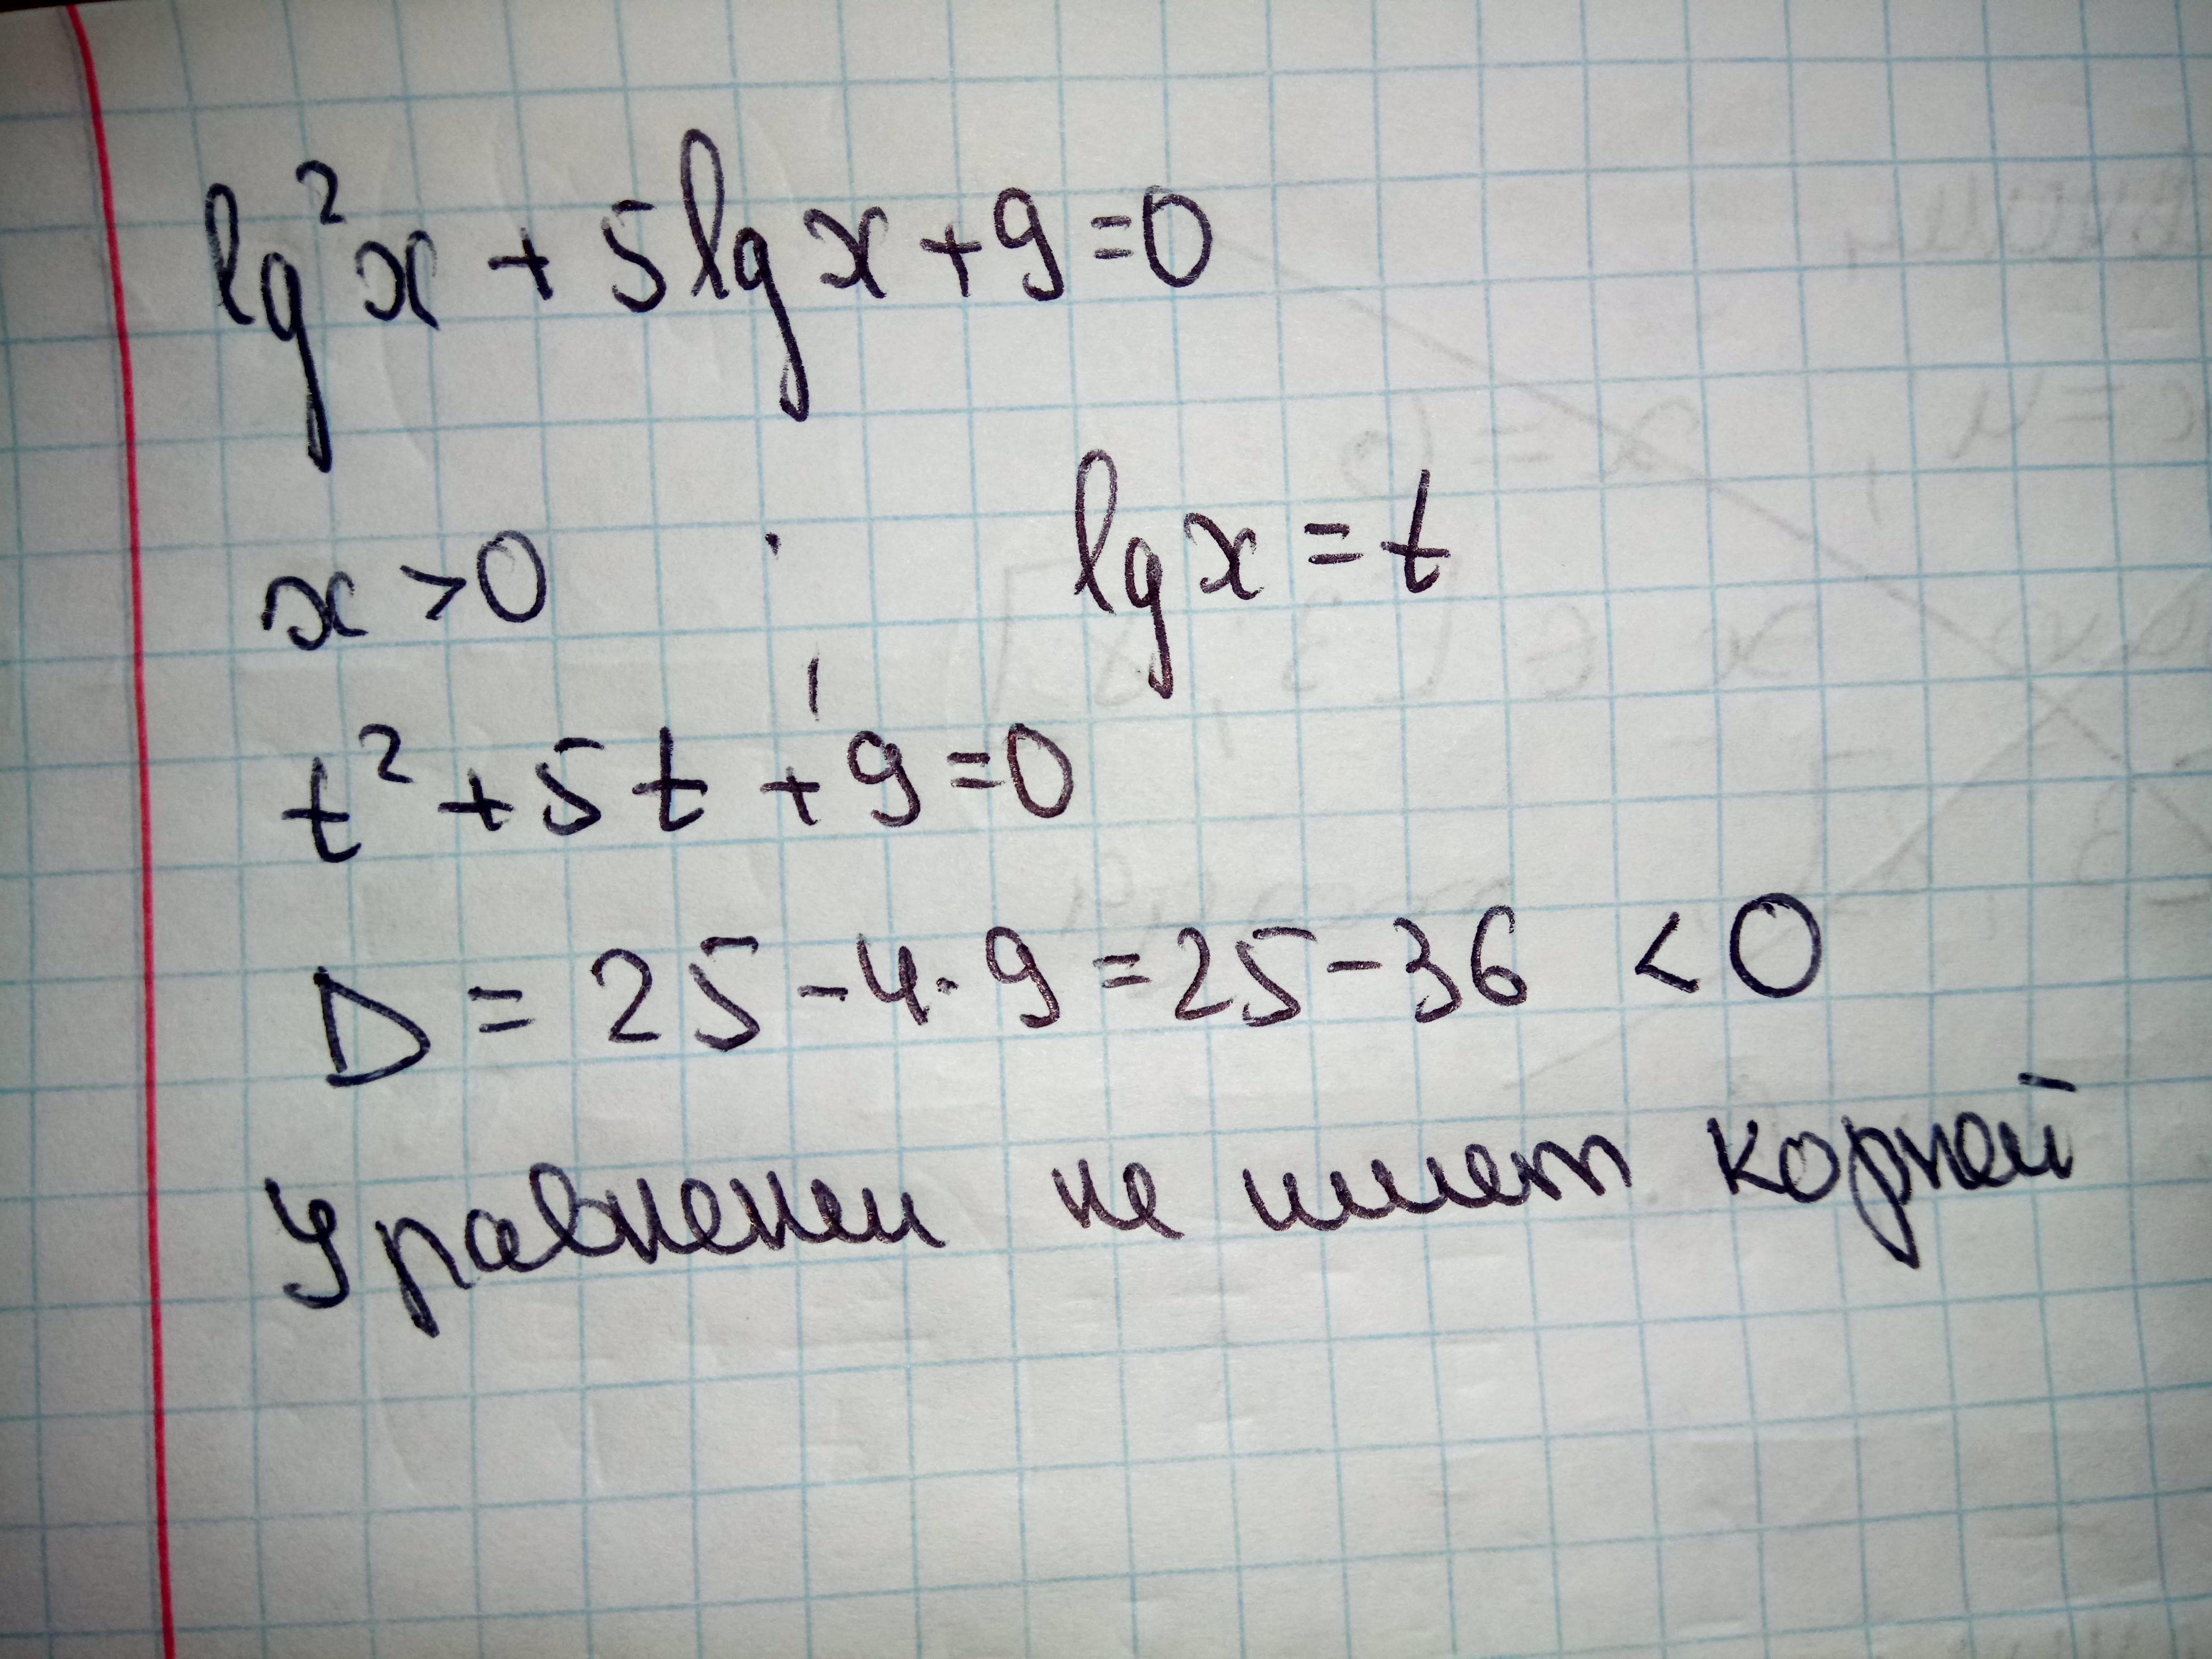 lg²x + 5lgx + 9 = 0
x > 0 lgx = t
t² + 5t + 9 = 0
D = 25 - 4·9 = 25 - 36 < 0
Уравнении не имеет корней